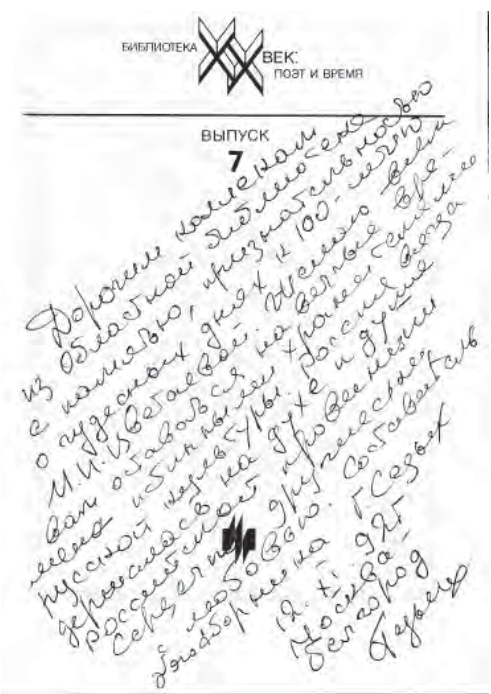 БИБЛИОТЕКА
XX
ВЕК:
ПОЭТ И ВРЕМЯ
ВЫПУСК
7
Дорогим коллегам
из областной библиотеки
с памятью, признательностью
о чудесных днях к 100-летию
М.И. Цветаевой. Желаю всем
вам оставаться на вечные вре-
мена истинными хранителями
русской культуры. Россия всегда
держалась на духе и душе
российской провинции
Сердечно, дружески,
с любовью. Составитель
сборника
12. XI. 92 г.
Москва -
Белгород